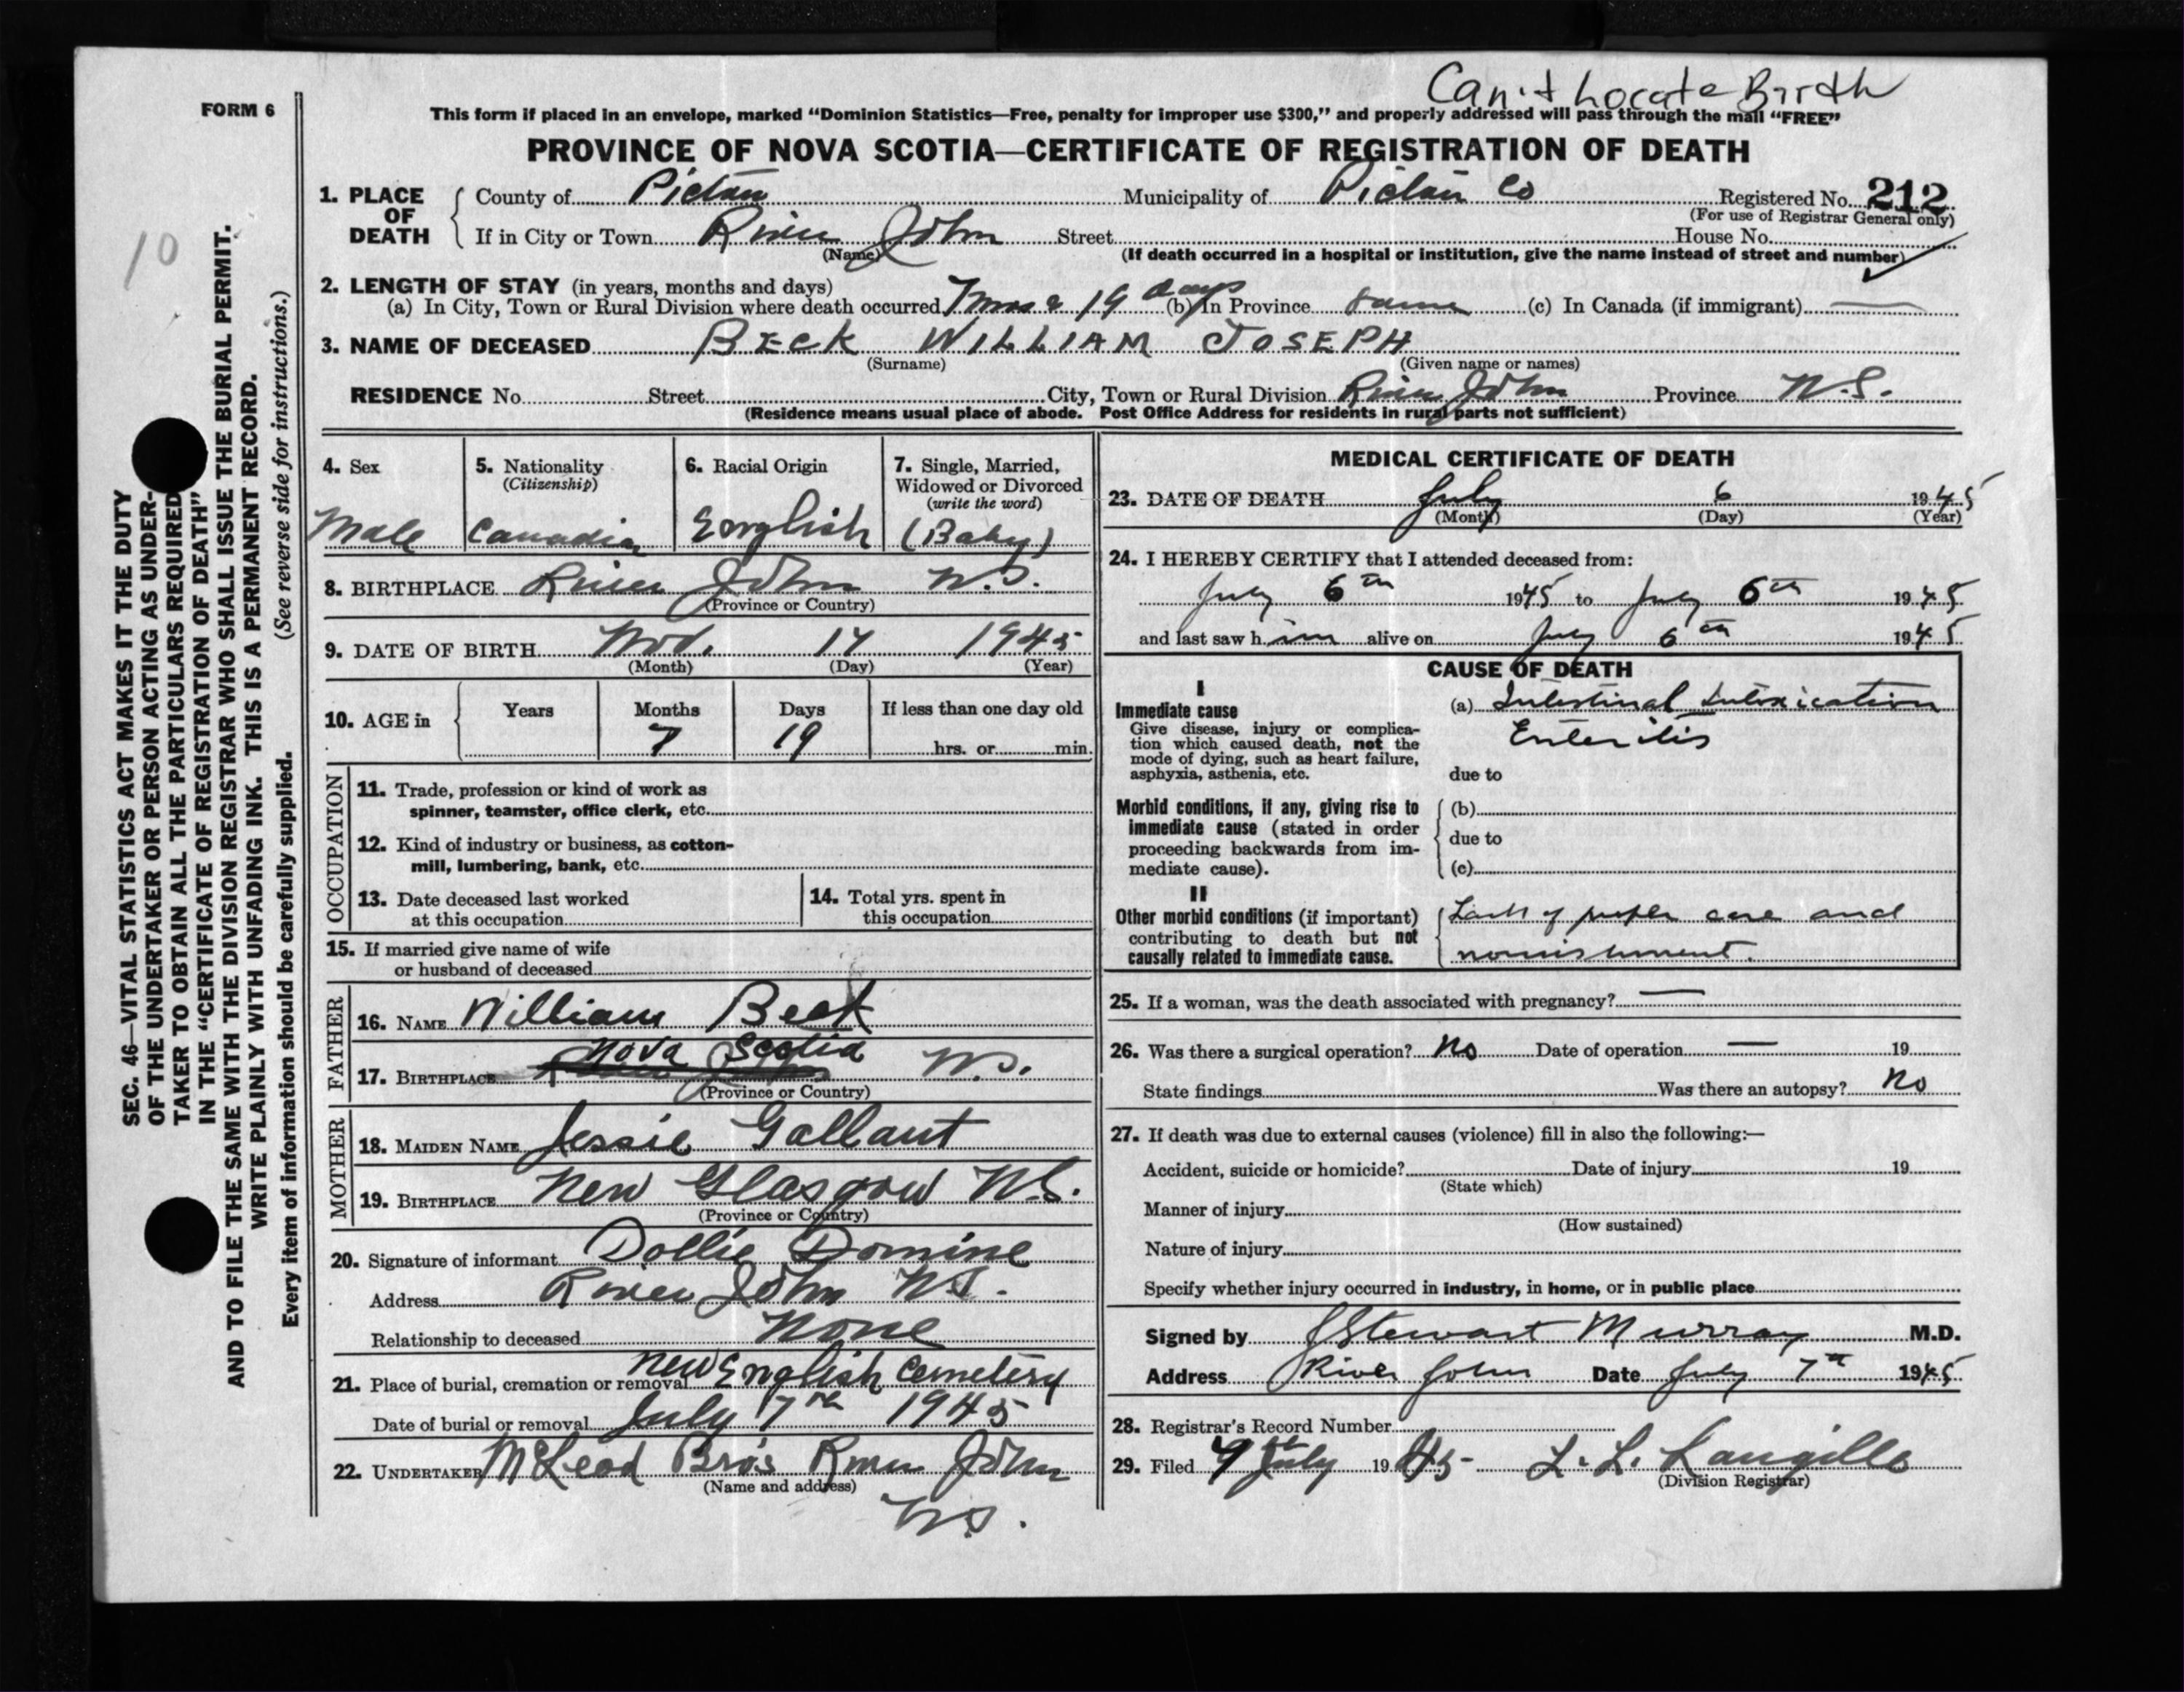 Can't Locate Birth
FORM 6
This form if placed in an envelope, marked "Dominion Statistics—Free, penalty for improper use $300," and properly addressed will pass through the mail "FREE"
PROVINCE OF NOVA SCOTIA—CERTIFICATE OF REGISTRATION OF DEATH
10
SEC. 46—VITAL STATISTICS ACT MAKES IT THE DUTY
OF THE UNDERTAKER OR PERSON ACTING AS UNDER-
TAKER TO OBTAIN ALL THE PARTICULARS REQUIRED
IN THE "CERTIFICATE OF REGISTRATION OF DEATH"
AND TO FILE THE SAME WITH THE DIVISION REGISTRAR WHO SHALL ISSUE THE BURIAL PERMIT.
WRITE PLAINLY WITH UNFADING INK. THIS IS A PERMANENT RECORD.
Every item of information should be carefully supplied. (See reverse side for instructions.)
1. PLACE OF DEATH County of Pictou Municipality of Pictou Co Registered No. 212
(For use of Registrar General only)
If in City or Town River John Street House No.
(Name) (If death occurred in a hospital or institution, give the name instead of street and number)
2. LENGTH OF STAY (in years, months and days)
(a) In City, Town or Rural Division where death occurred 7 mos & 19 days (b) In Province same (c) In Canada (if immigrant)
3. NAME OF DECEASED BECK WILLIAM JOSEPH
(Surname) (Given name or names)
RESIDENCE No. Street City, Town or Rural Division River John Province N.S.
(Residence means usual place of abode. Post Office Address for residents in rural parts not sufficient)
4. Sex 5. Nationality (Citizenship) 6. Racial Origin 7. Single, Married, Widowed or Divorced (write the word)
Male Canadian English (Baby)
8. BIRTHPLACE River John N.S.
(Province or Country)
9. DATE OF BIRTH Nov. 17 1945
(Month) (Day) (Year)
10. AGE in Years Months Days If less than one day old
7 19 hrs. or min.
OCCUPATION
11. Trade, profession or kind of work as
spinner, teamster, office clerk, etc.
12. Kind of industry or business, as cotton-
mill, lumbering, bank, etc.
13. Date deceased last worked at this occupation 14. Total yrs. spent in this occupation
15. If married give name of wife
or husband of deceased
FATHER
16. NAME William Beck
17. BIRTHPLACE Nova Scotia N.S.
(Province or Country)
MOTHER
18. MAIDEN NAME Jessie Gallant
19. BIRTHPLACE New Glasgow N.S.
(Province or Country)
20. Signature of informant Dollie Domine
Address River John N.S.
Relationship to deceased None
21. Place of burial, cremation or removal New English Cemetery
Date of burial or removal July 7th 1945
22. UNDERTAKER McLeod Bros River John
(Name and address)
N.S.
MEDICAL CERTIFICATE OF DEATH
23. DATE OF DEATH July 6 1945
(Month) (Day) (Year)
24. I HEREBY CERTIFY that I attended deceased from:
July 6th 1945 to July 6th 1945
and last saw him alive on July 6th 1945
CAUSE OF DEATH
I
Immediate cause (a) Intestinal Intoxication
Give disease, injury or complica-
tion which caused death, not the Enteritis
mode of dying, such as heart failure,
asphyxia, asthenia, etc. due to
Morbid conditions, if any, giving rise to (b)
immediate cause (stated in order
proceeding backwards from im- due to
mediate cause). (c)
II
Other morbid conditions (if important) Lack of proper care and
contributing to death but not
causally related to immediate cause. nourishment.
25. If a woman, was the death associated with pregnancy? —
26. Was there a surgical operation? No Date of operation — 19
State findings Was there an autopsy? No
27. If death was due to external causes (violence) fill in also the following:—
Accident, suicide or homicide? Date of injury 19
(State which)
Manner of injury
(How sustained)
Nature of injury
Specify whether injury occurred in industry, in home, or in public place
Signed by J Stewart Murray M.D.
Address River John Date July 7th 1945
28. Registrar's Record Number
29. Filed 9th July 1945 L. L. Langille
(Division Registrar)